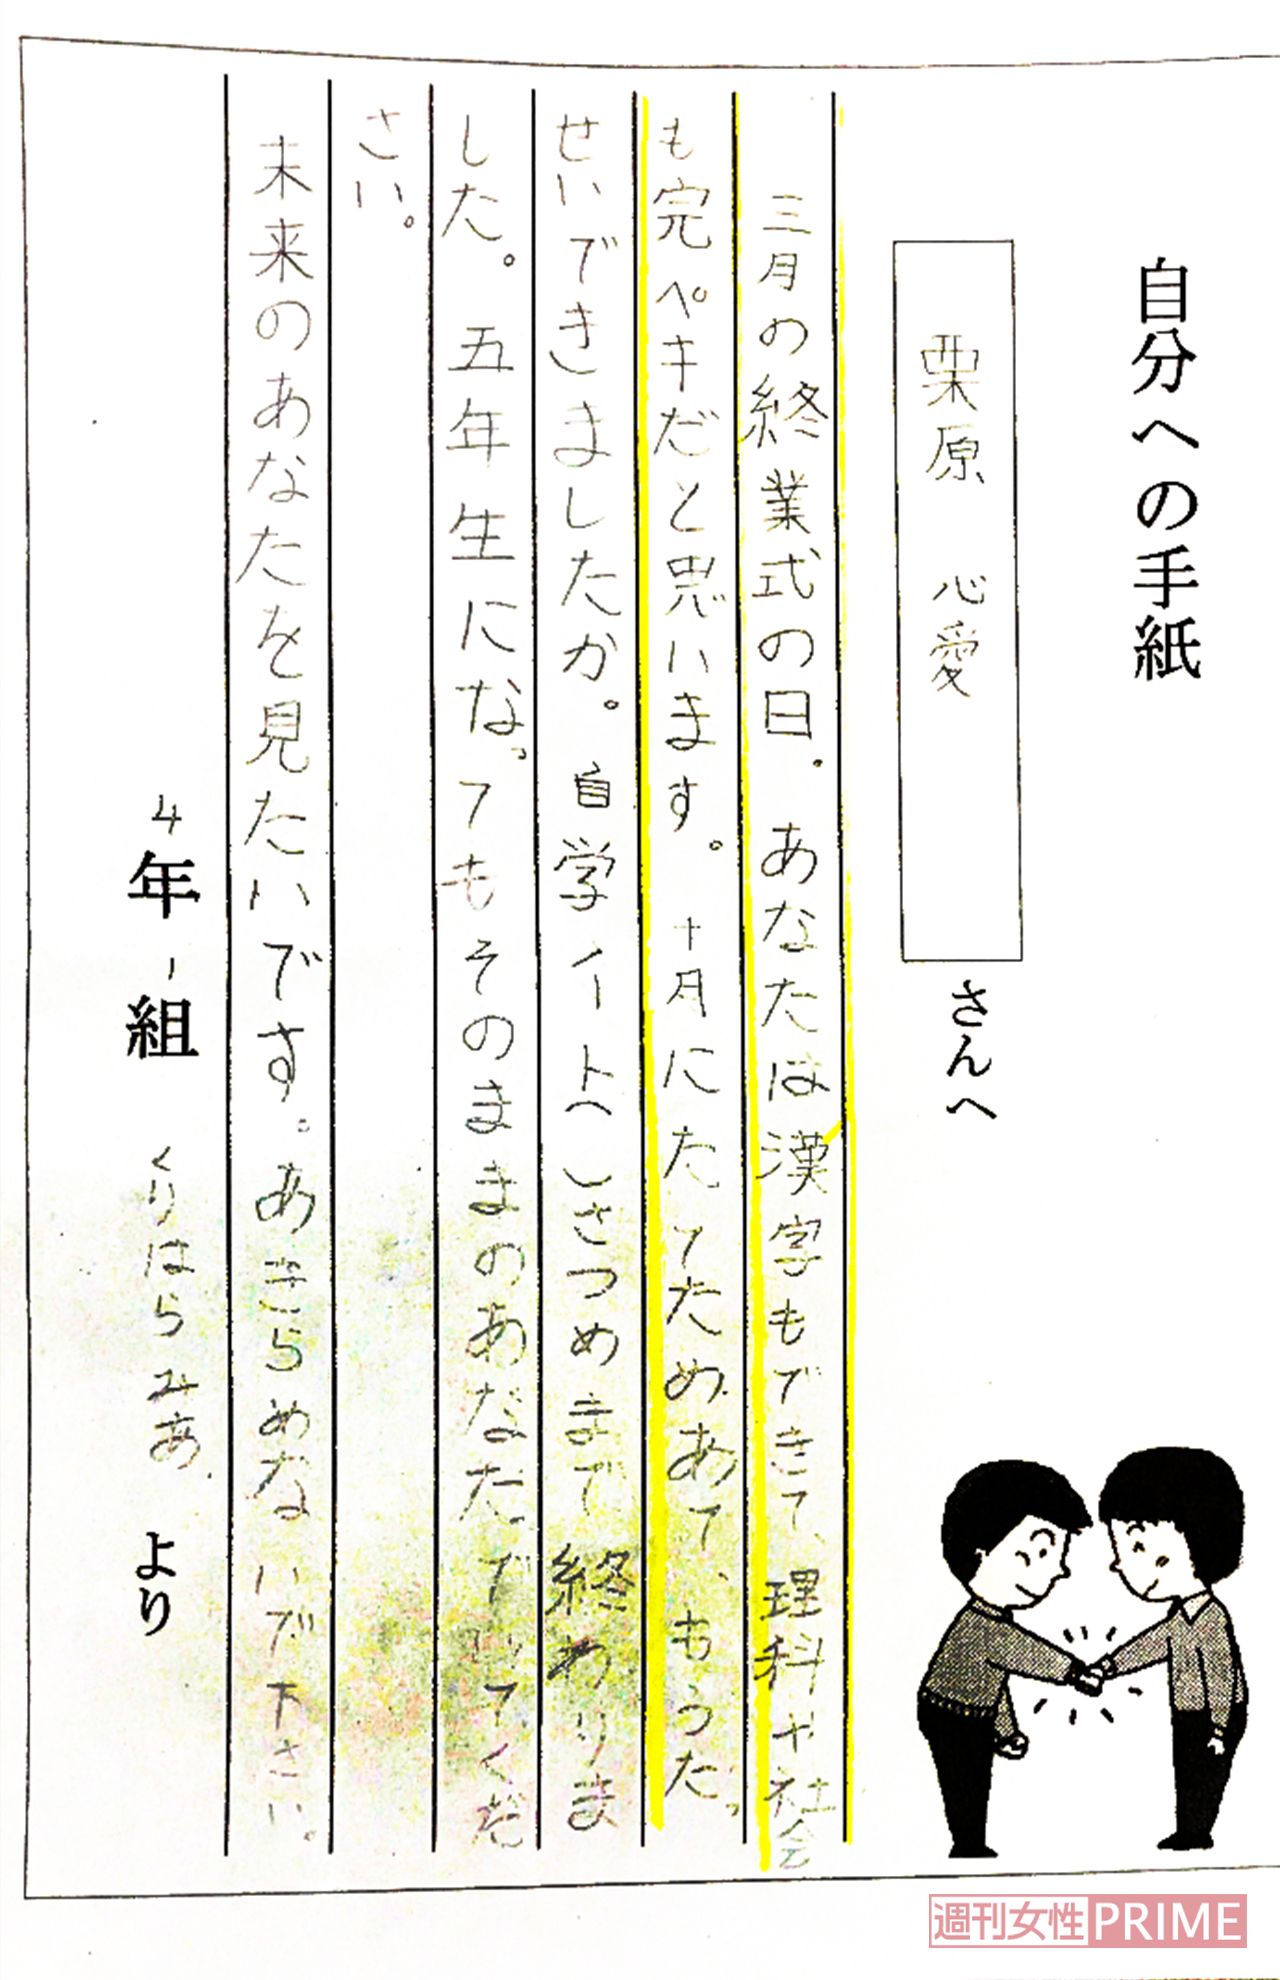 自分への手紙
栗原 心愛
さんへ
三月の終業式の日。あなたは漢字もできて、理科や社会
も完ペキだと思います。十月にたてためあて、もうた。
せいできましたか。自学ノートへんさつめまで終わりま
した。五年生になってもそのままのあなたでいてくだ
さい。
未来のあなたを見たいです。あきらめないで下さい。
4年1組 くりはらみあ より
週刊女性PRIME